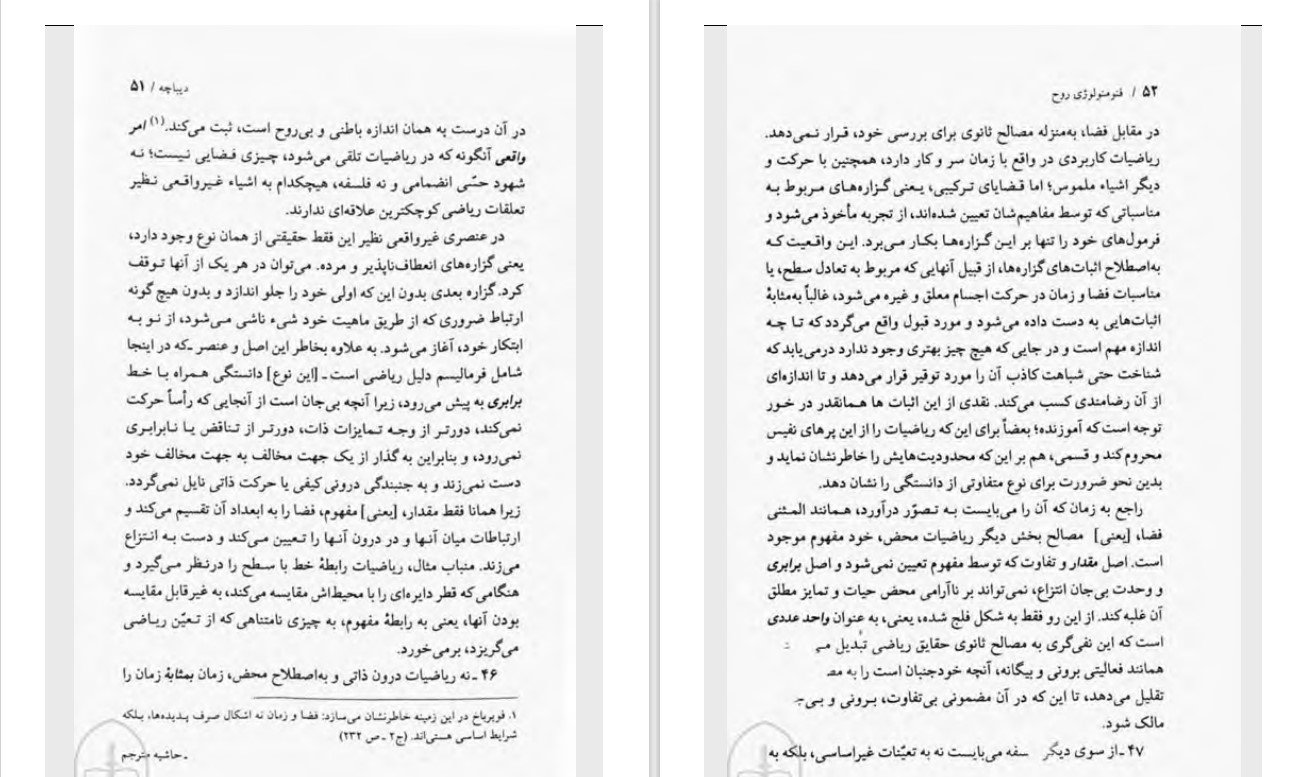 دیباچه / ۵۱
در آن درست به همان اندازه باطنی و بی‌روح است، ثبت می‌کند.(۱) امر
واقعی آنگونه که در ریاضیات تلقی می‌شود، چیزی فضایی نیست؛ نه
شهود حسّی انضمامی و نه فلسفه، هیچکدام به اشیاء غیرواقعی نظیر
تعلقات ریاضی کوچکترین علاقه‌ای ندارند.
در عنصری غیرواقعی نظیر این فقط حقیقتی از همان نوع وجود دارد،
یعنی گزاره‌های انعطاف‌ناپذیر و مرده. می‌توان در هر یک از آنها توقف
کرد. گزاره بعدی بدون این که اولی خود را جلو اندازد و بدون هیچ گونه
ارتباط ضروری که از طریق ماهیت خود شیء ناشی می‌شود، از نو به
ابتکار خود، آغاز می‌شود. به علاوه بخاطر این اصل و عنصر ـ‌که در اینجا
شامل فرمالیسم دلیل ریاضی است ـ [این نوع] دانستگی همراه با خط
برابری به پیش می‌رود، زیرا آنچه بی‌جان است از آنجایی که رأساً حرکت
نمی‌کند، دورتر از وجه تمایزات ذات، دورتر از تناقض یا نابرابری
نمی‌رود، و بنابراین به گذار از یک جهت مخالف به جهت مخالف خود
دست نمی‌زند و به جنبندگی درونی کیفی یا حرکت ذاتی نایل نمی‌گردد.
زیرا همانا فقط مقدار، [یعنی] مفهوم، فضا را به ابعداد آن تقسیم می‌کند و
ارتباطات میان آنها و در درون آنها را تعیین می‌کند و دست به انتزاع
می‌زند. منباب مثال، ریاضیات رابطهٔ خط با سطح را درنظر می‌گیرد و
هنگامی که قطر دایره‌ای را با محیط‌اش مقایسه می‌کند، به غیرقابل مقایسه
بودن آنها، یعنی به رابطهٔ مفهوم، به چیزی نامتناهی که از تعیّن ریاضی
می‌گریزد، برمی‌خورد.
۴۶ ـ نه ریاضیات درون ذاتی و به‌اصطلاح محض، زمان بمثابهٔ زمان را
۱. فویرباخ در این زمینه خاطرنشان می‌سازد: فضا و زمان نه اشکال صرف پدیده‌ها، بلکه
شرایط اساسی هستی‌اند. (ج۲ ـ ص ۲۳۲)
ـ حاشیه مترجم
۵۲ / فنومنولوژی روح
در مقابل فضا، به‌منزله مصالح ثانوی برای بررسی خود، قرار نمی‌دهد.
ریاضیات کاربردی در واقع با زمان سر و کار دارد، همچنین با حرکت و
دیگر اشیاء ملموس؛ اما قضایای ترکیبی، یعنی گزاره‌های مربوط به
مناسباتی که توسط مفاهیم‌شان تعیین شده‌اند، از تجربه مأخوذ می‌شود و
فرمول‌های خود را تنها بر این گزاره‌ها بکار می‌برد. این واقعیت که
به‌اصطلاح اثبات‌های گزاره‌ها، از قبیل آنهایی که مربوط به تعادل سطح، یا
مناسبات فضا و زمان در حرکت اجسام معلق و غیره می‌شود، غالباً به‌مثابهٔ
اثبات‌هایی به دست داده می‌شود و مورد قبول واقع می‌گردد که تا چه
اندازه مهم است و در جایی که هیچ چیز بهتری وجود ندارد درمی‌یابد که
شناخت حتی شباهت کاذب آن را مورد توقیر قرار می‌دهد و تا اندازه‌ای
از آن رضامندی کسب می‌کند. نقدی از این اثبات ها همانقدر در خور
توجه است که آموزنده؛ بعضاً برای این که ریاضیات را از این پرهای نفیس
محروم کند و قسمی، هم بر این که محدودیت‌هایش را خاطرنشان نماید و
بدین نحو ضرورت برای نوع متفاوتی از دانستگی را نشان دهد.
راجع به زمان که آن را می‌بایست به تصوّر درآورد، همانند المثنی
فضا، [یعنی] مصالح بخش دیگر ریاضیات محض، خود مفهوم موجود
است. اصل مقدار و تفاوت که توسط مفهوم تعیین نمی‌شود و اصل برابری
و وحدت بی‌جان انتزاع، نمی‌تواند بر ناآرامی محض حیات و تمایز مطلق
آن غلبه کند. از این رو فقط به شکل فلج شده، یعنی، به عنوان واحد عددی
است که این نفی‌گری به مصالح ثانوی حقایق ریاضی تبدیل
همانند فعالیتی برونی و بیگانه، آنچه خودجنبان است را به
تقلیل می‌دهد، تا این که در آن مضمونی بی‌تفاوت، برونی و
مالک شود.
۴۷ ـ از سوی دیگر می‌بایست نه به تعیّنات غیراساسی، بلکه به